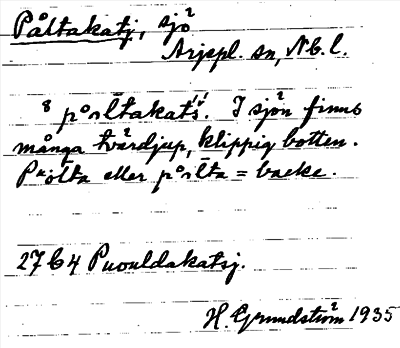 Påltakatj, sjö
Arjepl. sn, Nb. l.
8 på̄ltakat́š́. I sjön finns
många tvärdjup, klippig botten.
Påo̅lta eller på̄lta = backe.
27 C 4 Puouldakatsj.
H. Grundström 1935